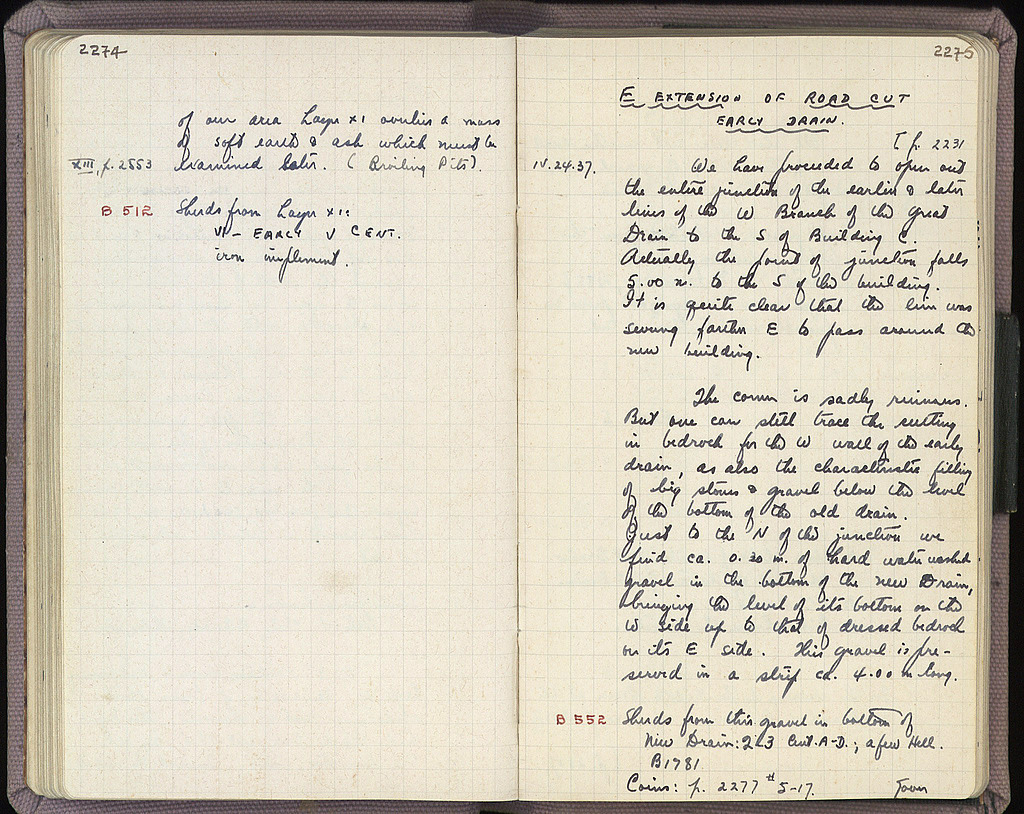 2274
of our area Layer XI overlies a mass
of soft earth & ash which must be
XIII, p. 2553 examined later. (Broiling Pits).
B 512 Sherds from Layer XI:
VI - EARLY V CENT.
iron implement.
2275
E EXTENSION OF ROAD CUT
EARLY DRAIN.
[p. 2231
IV.24.37. We have proceeded to open out
the entire junction of the earlier & later
lines of the W Branch of the Great
Drain to the S of Building C.
Actually the point of junction falls
5.00 m. to the S of the building.
It is quite clear that the line was
swung farther E to pass around the
new building.
The corner is sadly ruinous.
But one can still trace the cutting
in bedrock for the W wall of the early
drain, as also the characteristic filling
of big stones & gravel below the level
of the bottom of the old drain.
Just to the N of the junction we
find ca. 0.30 m. of hard water washed
gravel in the bottom of the new Drain,
bringing the level of its bottom on the
W side up to that of dressed bedrock
on its E side. This gravel is pre-
served in a strip ca. 4.00 m long.
B 552 Sherds from this gravel in bottom of
New Drain: 2&3 Cent. A.D.; a few Hell.
B1781
Coins: p. 2277 # 5-17.